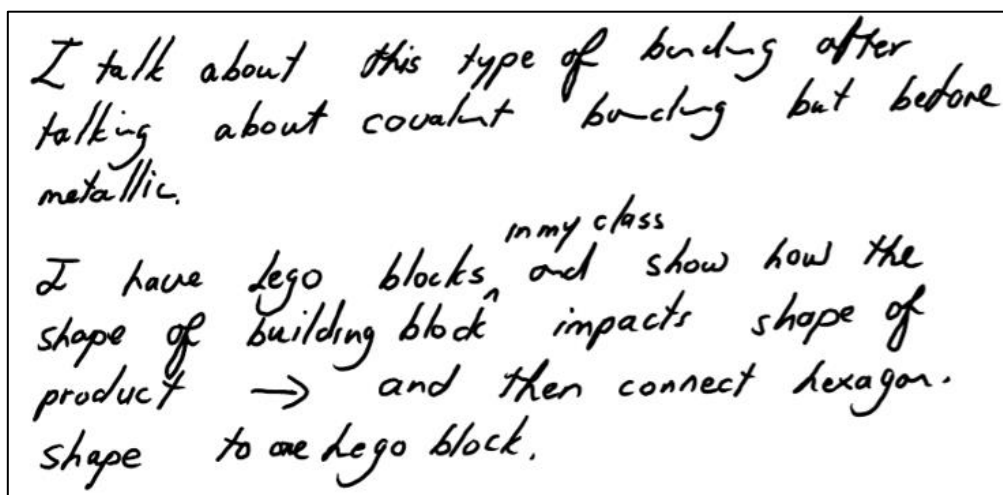 I talk about this type of bonding after
talking about covalent bonding but before
metallic.
I have Lego blocks ^ in my class and show how the
shape of building block impacts shape of
product → and then connect hexagon.
shape to one Lego block.